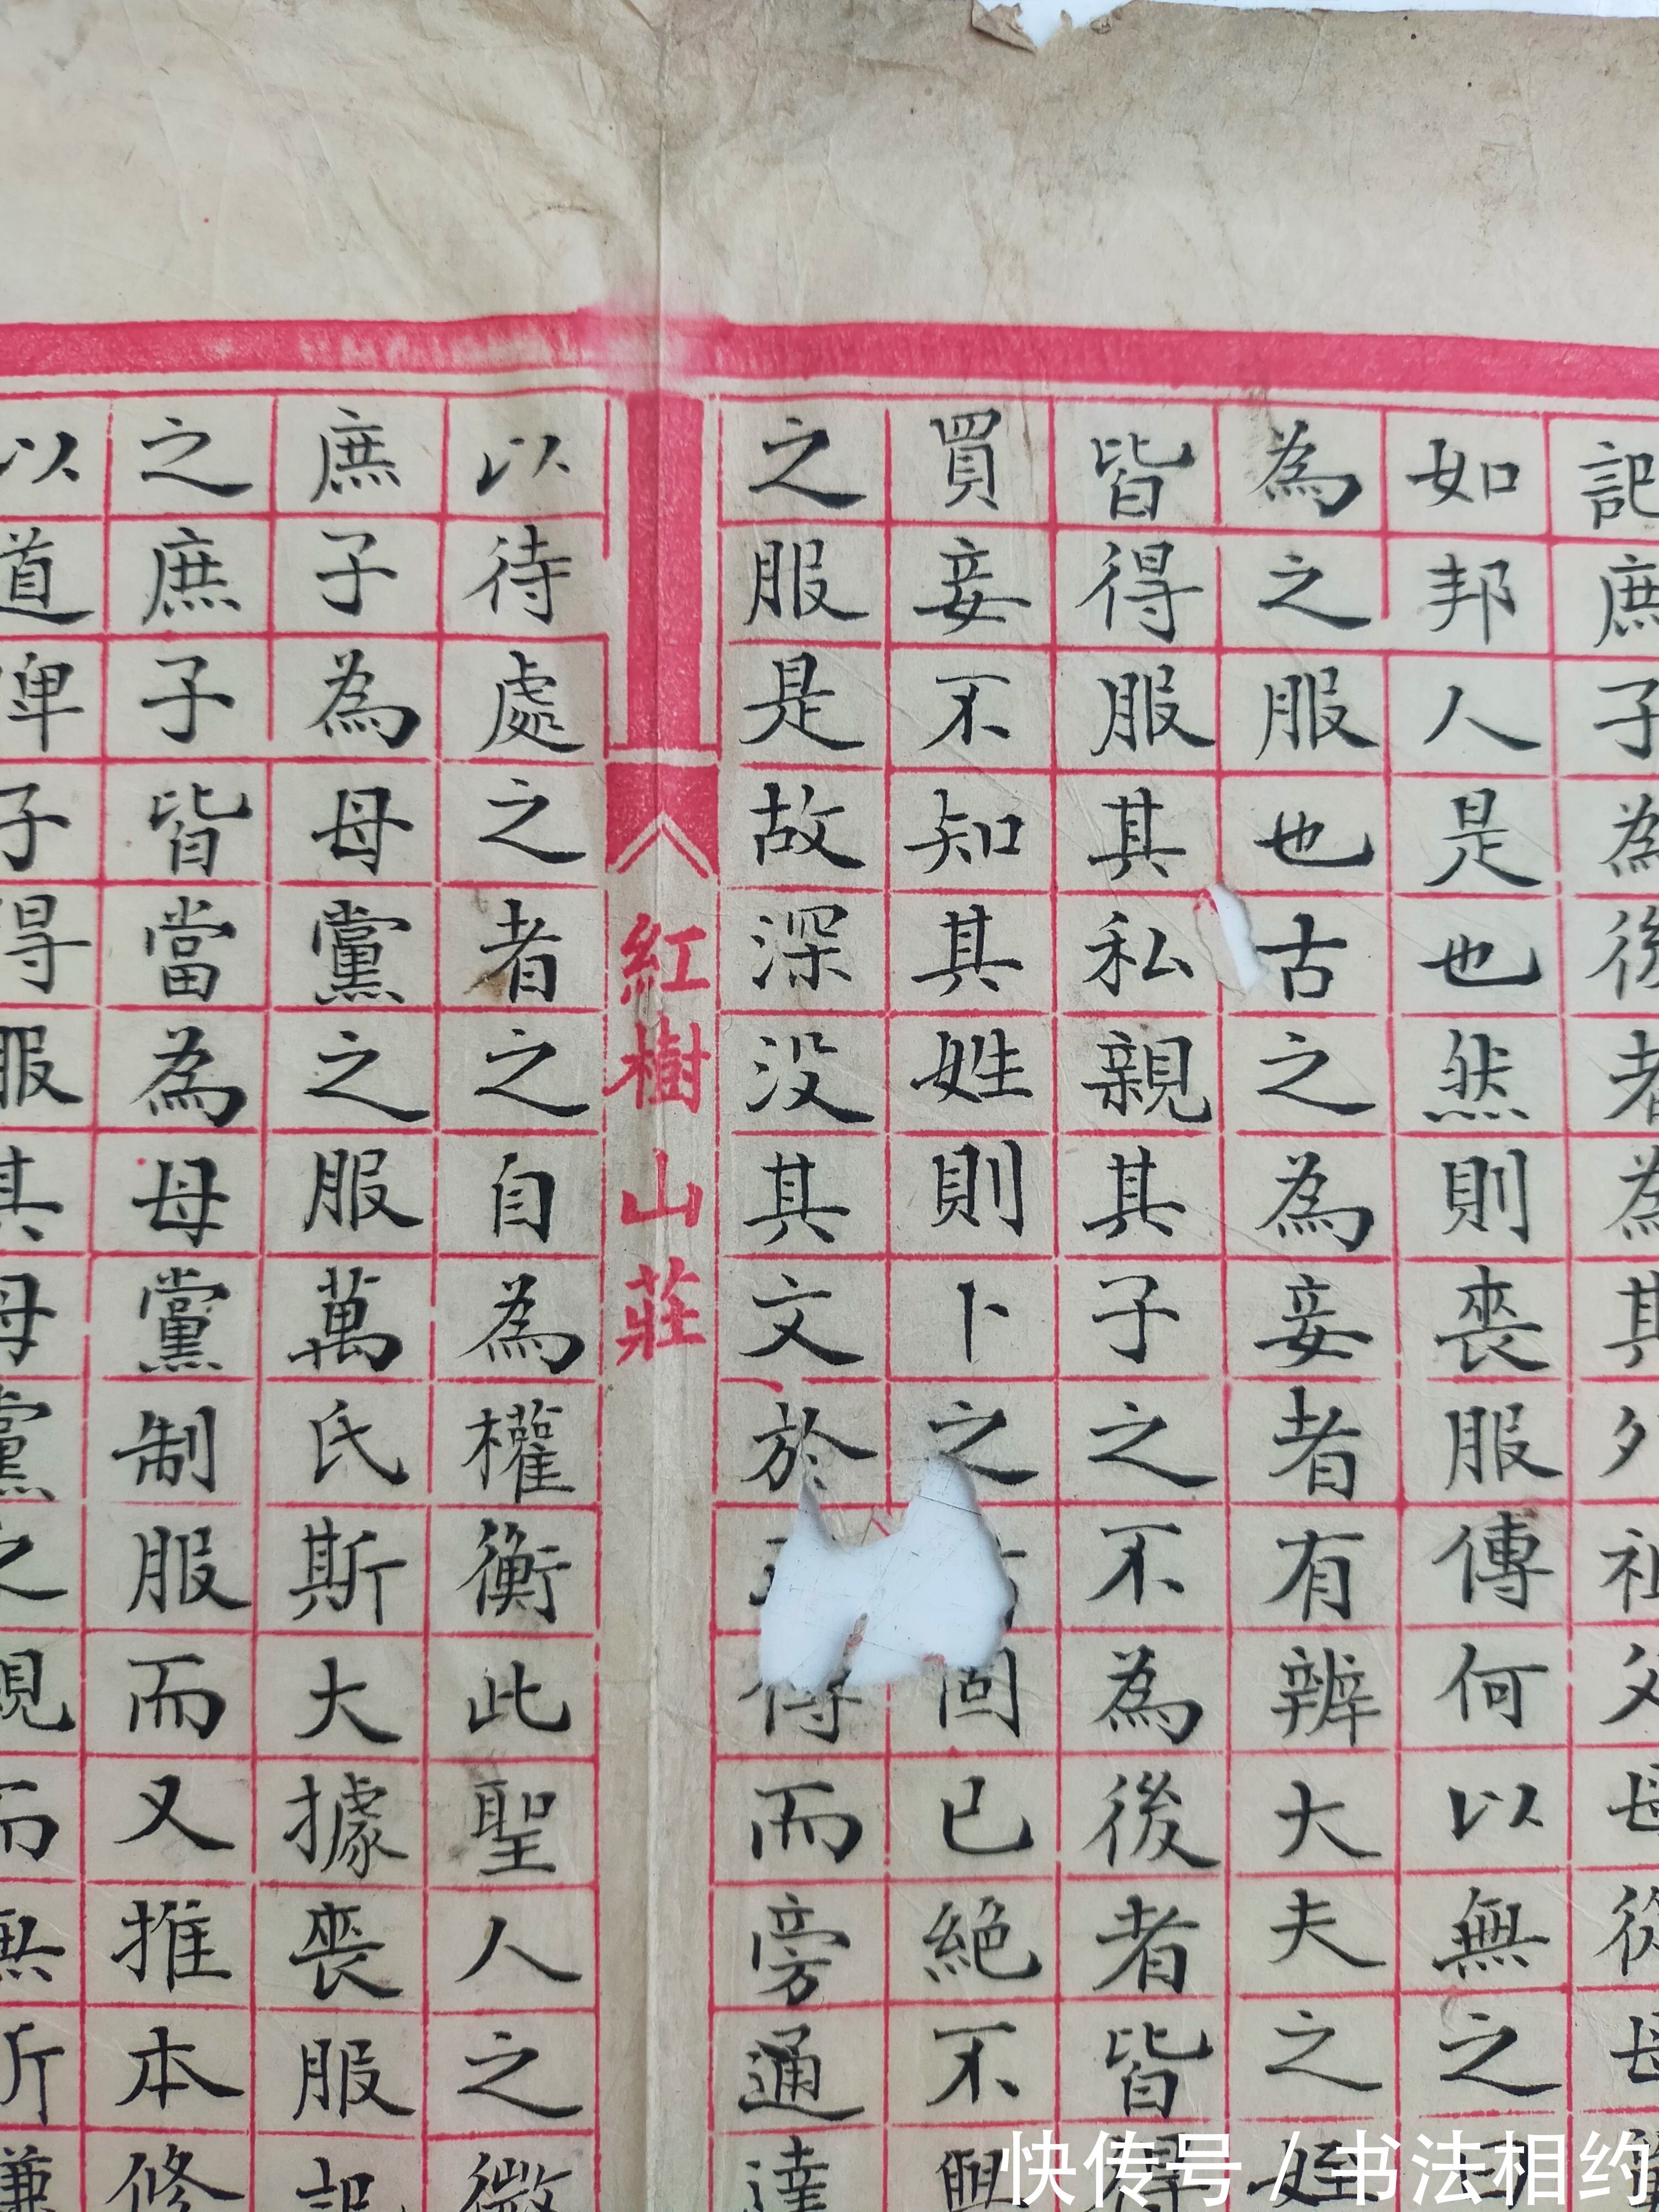 記庶子為後者為其外祖父母從母
如邦人是也然則喪服傳何以無之
為之服也古之為妾者有辨大夫之姪
皆得服其私親其子之不為後者皆得
買妾不知其姓則卜之固已絕不與
之服是故深沒其文於得而旁通達
紅樹山莊
以待處之者之自為權衡此聖人之微
庶子為母黨之服萬氏斯大據喪服記
之庶子皆當為母黨制服而又推本修
以道婢子得服其母黨之親而無所嫌
快传号 / 书法相约